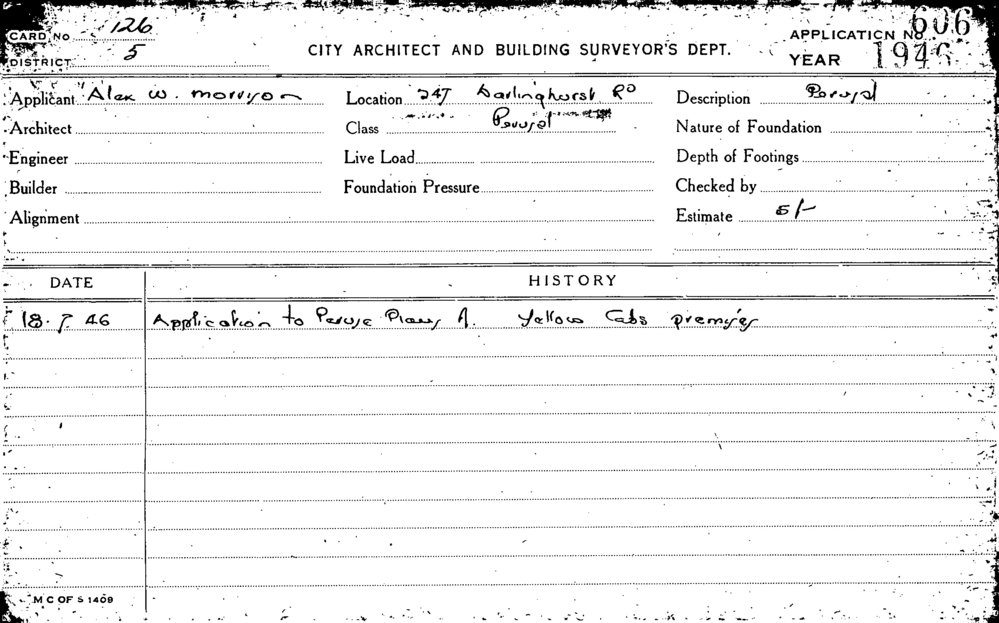 CARD No 126
APPLICATION No 606
DISTRICT 5
CITY ARCHITECT AND BUILDING SURVEYOR'S DEPT.
YEAR 1946
Applicant Alex W. Morrison
Location 247 Darlinghurst Rd
Description Perusal
Architect
Class Perusal
Nature of Foundation
Engineer
Live Load
Depth of Footings
Builder
Foundation Pressure
Checked by
Alignment
Estimate 5/-
DATE HISTORY
18.7.46 Application to Peruse Plans of Yellow Cabs premises
M C OF S 1409